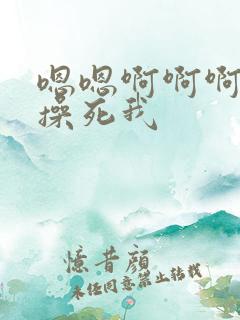 嗯嗯啊啊啊
操死我
憶昔顔
未经同意禁止转载